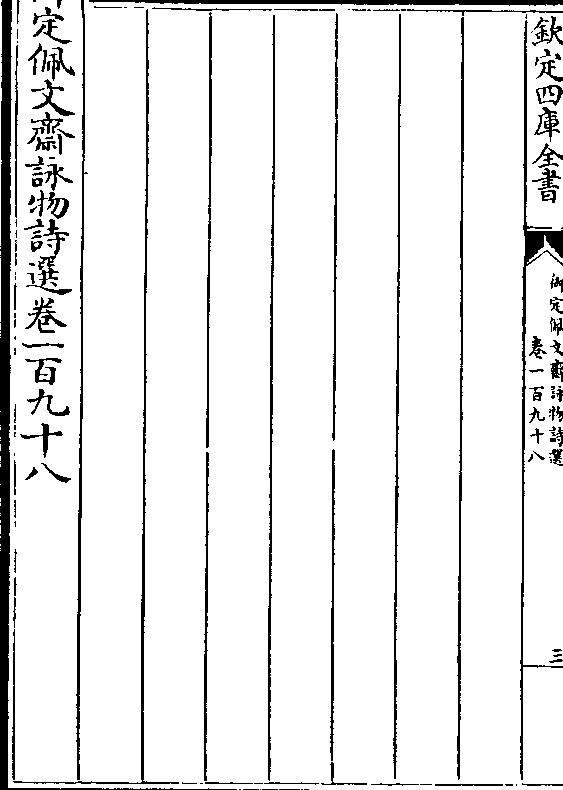 欽定四庫全書
御定佩文齋詠物詩選
卷一百九十八
三
御定佩文齋詠物詩選卷一百九十八